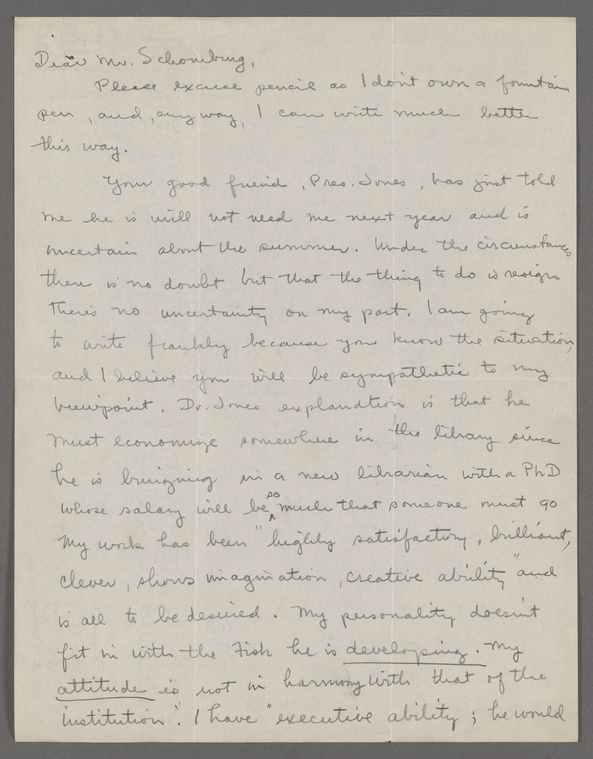 Dear Mr. Schomburg,
Please excuse pencil as I don't own a fountain
pen, and, anyway, I can write much better
this way.
Your good friend, Pres. Jones, has just told
me he is will not need me next year and is
uncertain about the summer. Under the circumstances
there is no doubt but that the thing to do is resign
There's no uncertainty on my part. I am going
to write frankly because you know the situation,
and I believe you will be sympathetic to my
viewpoint. Dr. Jones explanation is that he
must economize somewhere in the library since
he is bringing in a new librarian with a PhD
whose salary will be so much that someone must go
My work has been "highly satisfactory, brilliant,
clever, shows imagination, creative ability" and
is all to be desired. My personality doesn't
fit in with the Fisk he is developing. My
attitude is not in harmony with that of the
institution". I have "executive ability; he would